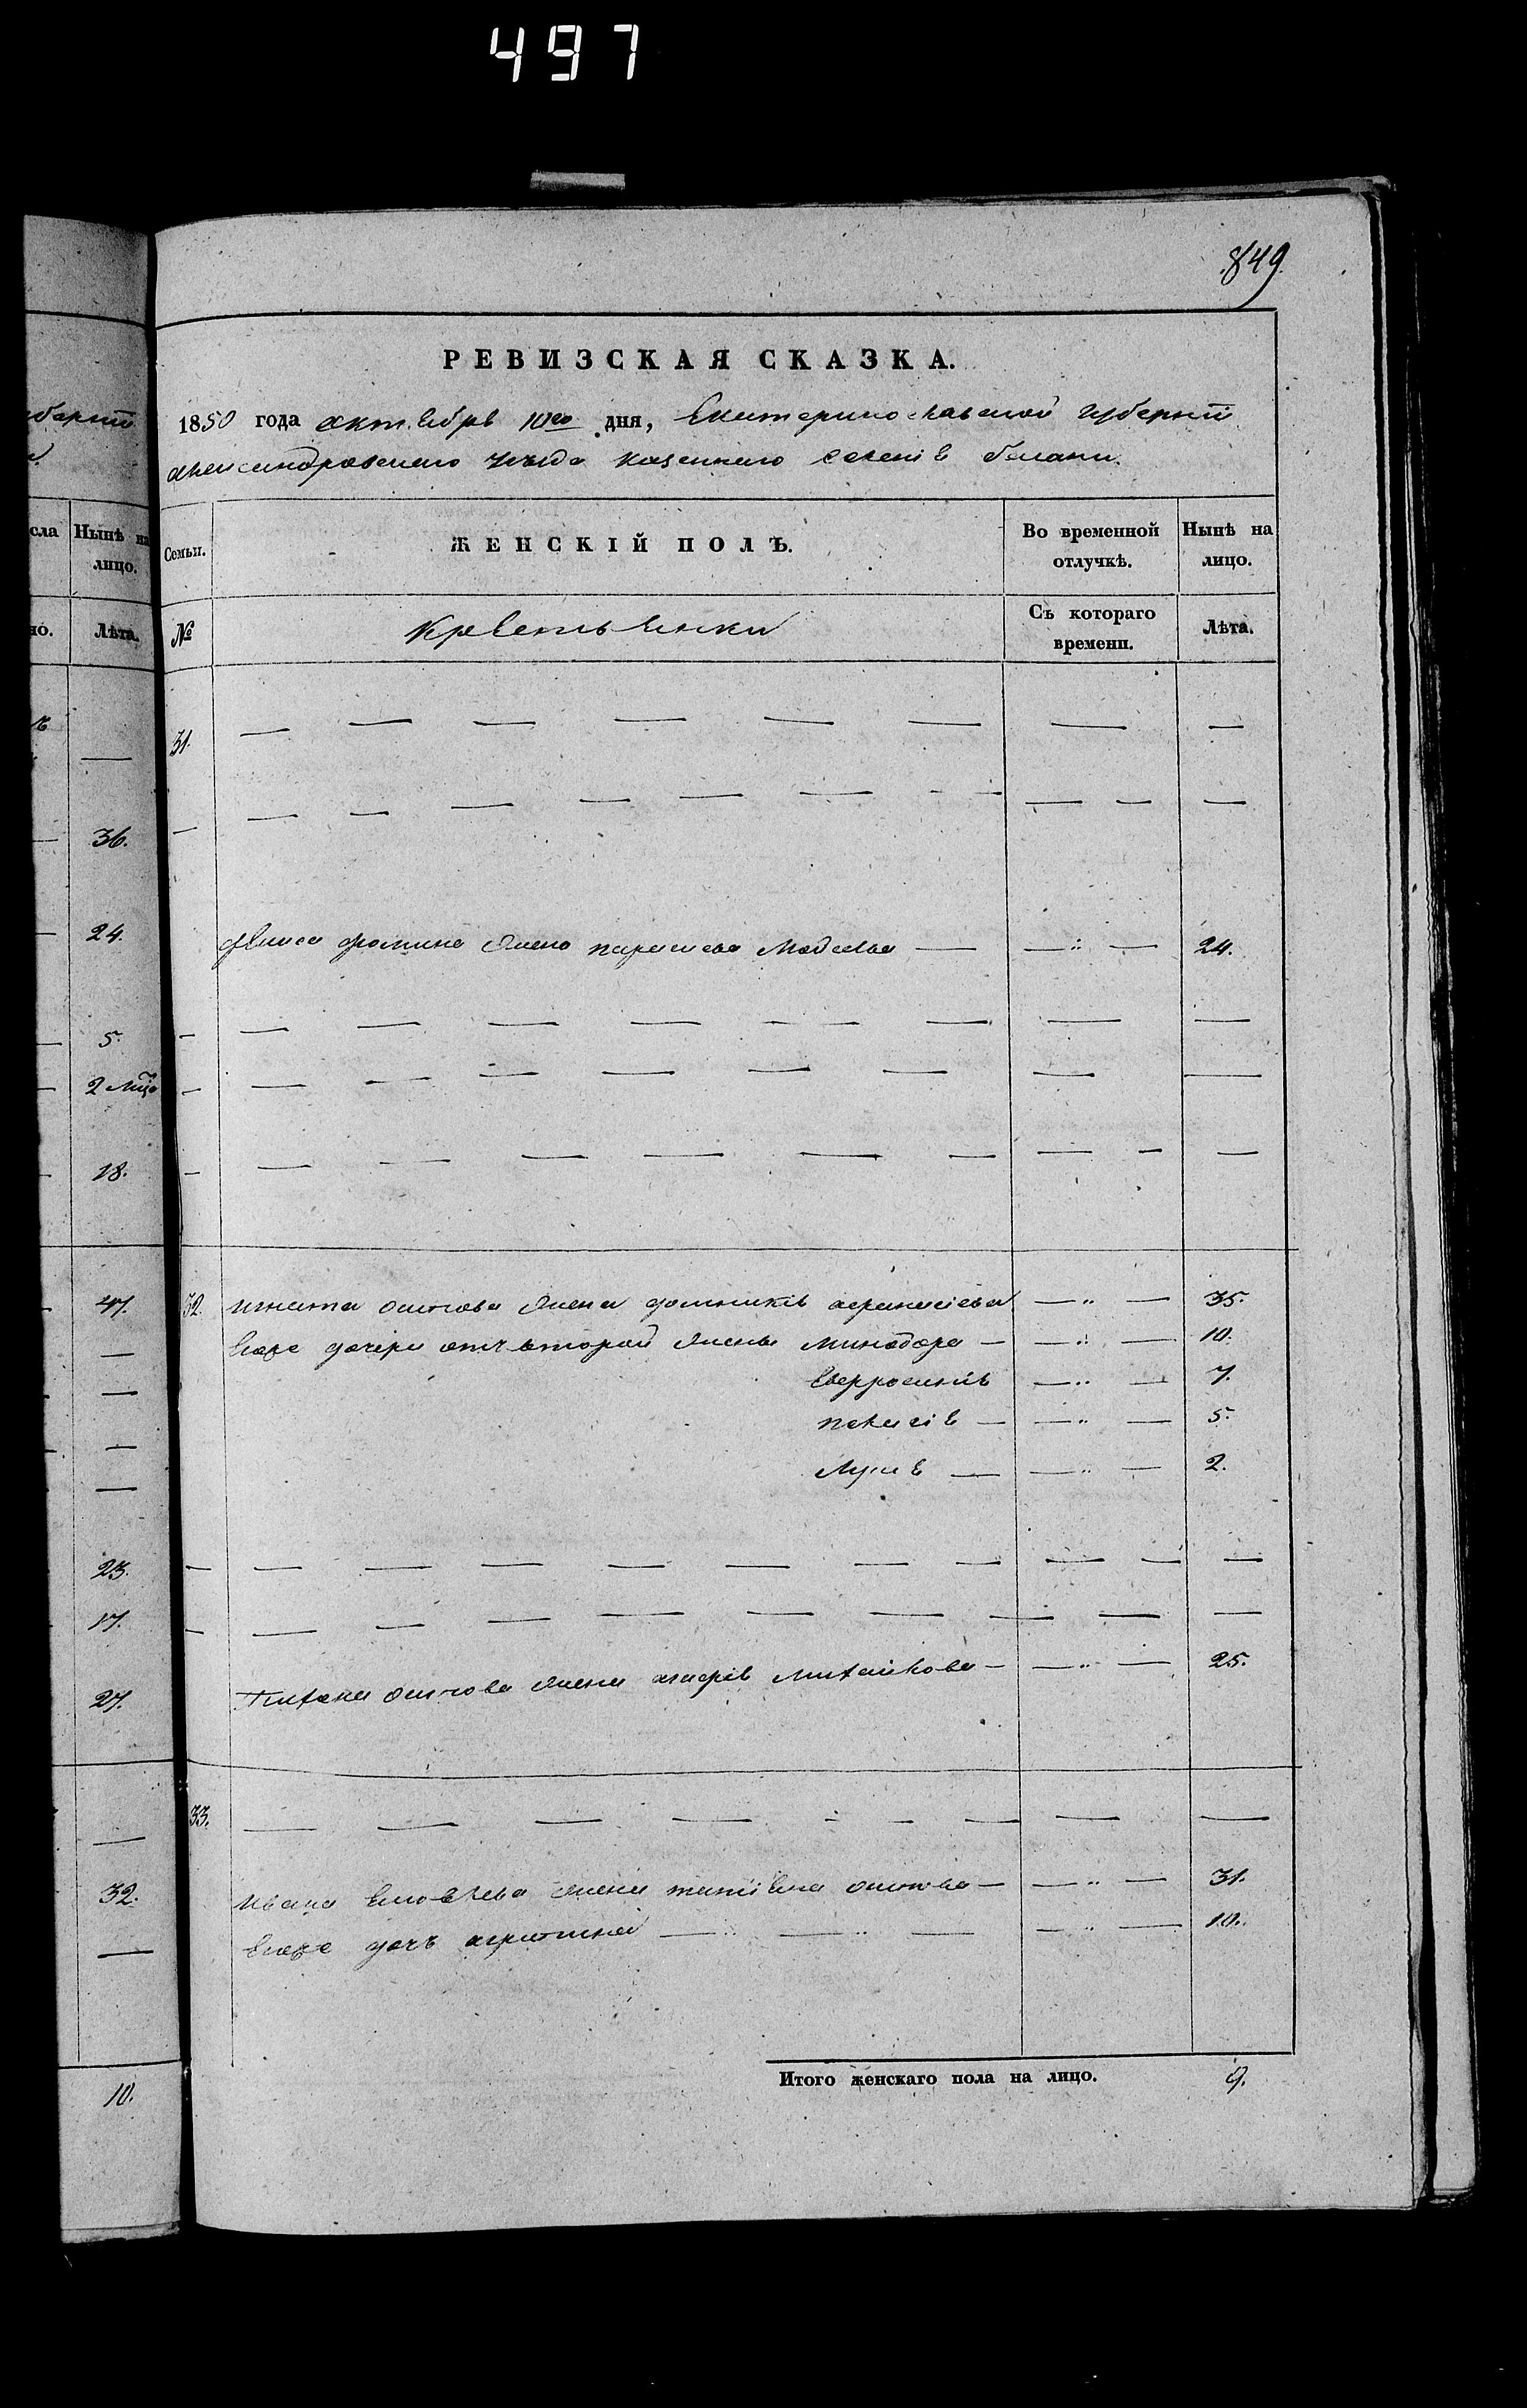 497
849.
РЕВИЗСКАЯ СКАЗКА.
1850 года октября 10го дня, Екатеринославской губернiи
александровскаго уѣзда казеннаго селенiя
Семьи.
ЖЕНСКІЙ ПОЛЪ.
Во временной отлучкѣ.
Нынѣ на лицо.
№
Крестьянки
Съ котораго времени.
Лѣта.
31.
фомина жена параскева 24.
32. игната осипова жена домникiя афанасiева 35.
его дочери отъ второй жены минодора 10.
Евфросинiя 7.
пелагiя 5.
2.
осипова жена агафiя михайлова 25.
33.
ивана жена татiяна осипова 31.
его дочь 10.
Итого женскаго пола на лицо. 9.
губернiи
сла
Нынѣ на лицо.
но.
Лѣта.
36.
24.
5.
2 мѣс
18.
47.
23.
17.
27.
32.
10.